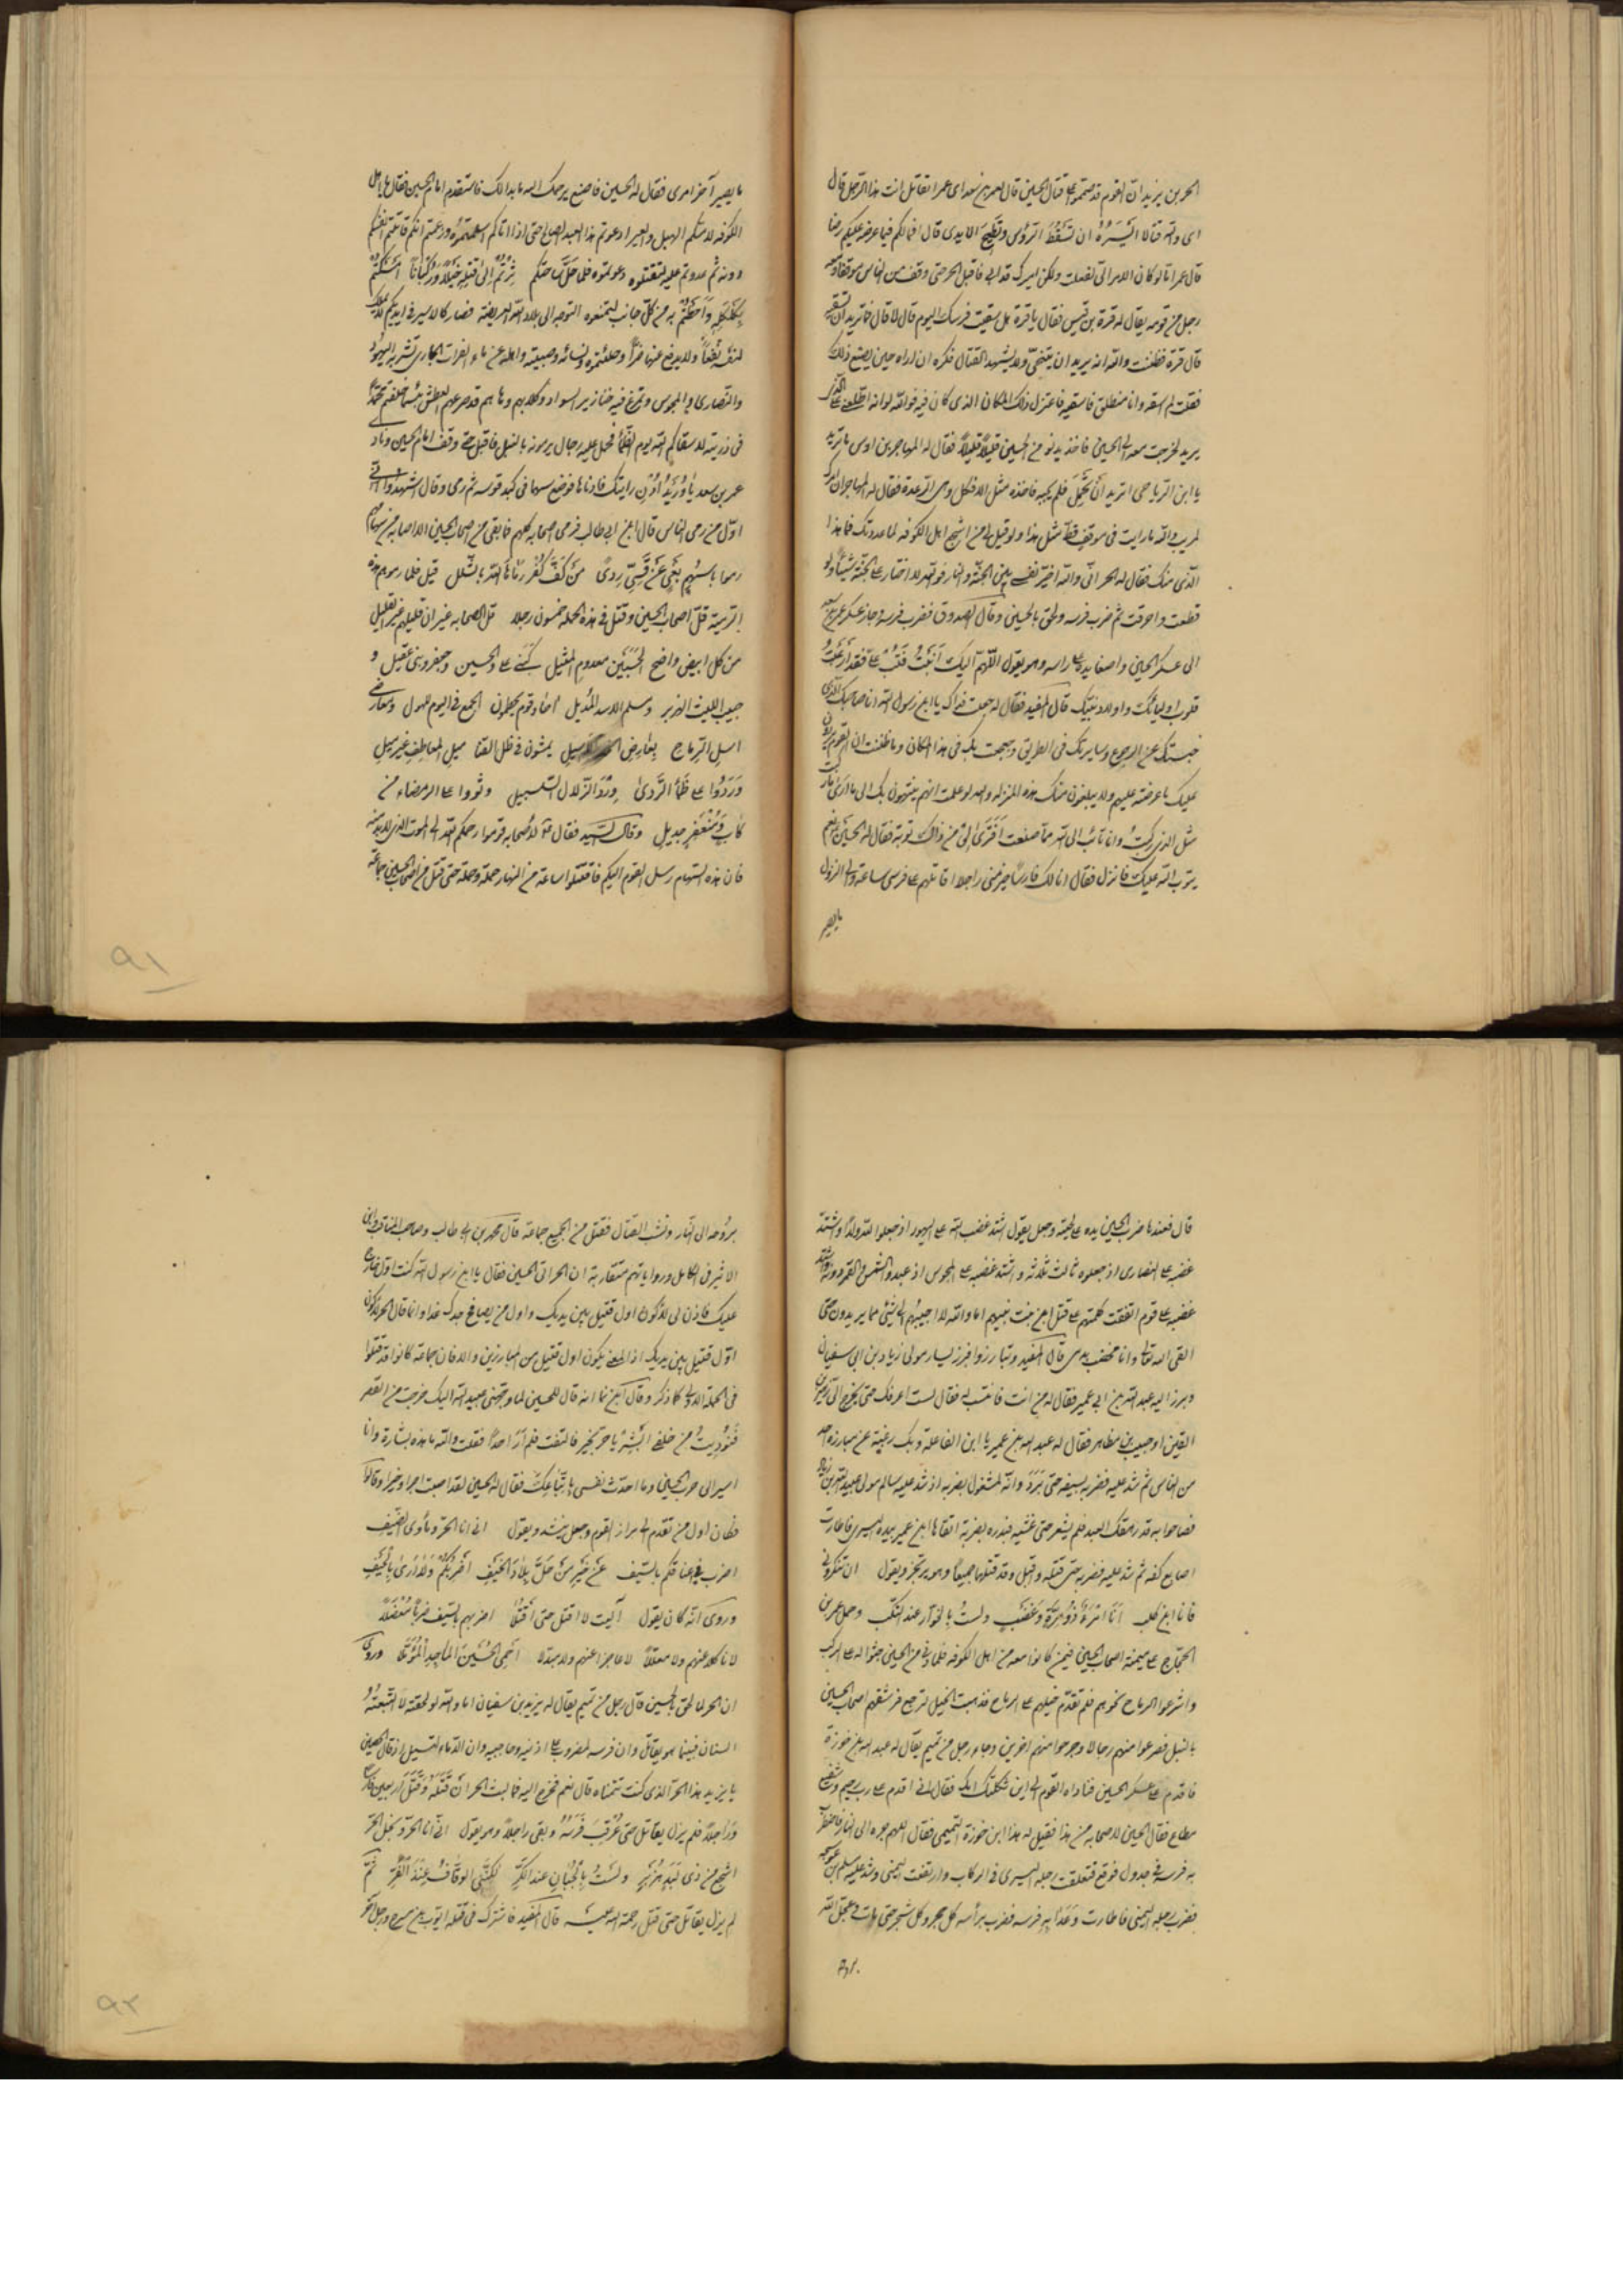 الحر بن یزید ان القوم قد صمموا علی قتال الحسین قال لعمر بن سعد ای عمر اتقاتل انت هذا الرجل قال
ای والله قتالا اَیْسَرُهُ ان تَسْقُطَ الرؤس وتَطِیحَ الایدی قال افمالکم فیما عرضه علیکم رضا
قال عمر اما لو کان الامر الیّ لفعلت ولکن امیرک قد ابی فاقبل الحر حتی وقف من الناس موقفا ومعه
رجل من قومه یقال له قرة بن قیس فقال یا قرة هل سقیت فرسک الیوم قال لا قال فما ترید ان تسقیه
قال قرة فظننت والله انه یرید ان یتنحّی ولا یشهد القتال فکره ان اراه حین یصنع ذلک
فقلت له لم اسقه وانا منطلق فاسقیه فاعتزل ذلک المکان الذی کان فیه فوالله لو انه اطلعنی علی الذی
یرید لخرجت معه الی الحسین فاخذ یدنو من الحسین قلیلاً قلیلاً فقال له المهاجر بن اوس ما ترید
یا ابن الریاحی اترید اَنْ تَحْمِلَ فلم یجبه فاخذه مثل الافکل وهی الرعدة فقال له المهاجر ان امرک
لمریب والله ما رایت فی موقفٍ قطّ مثل هذا ولو قیل لی من اشجع اهل الکوفه لما عدوتک فما هذا
الّذی منک فقال له الحر انّی والله اخیّر نفسی بین الجنّة والنار فوالله لا اختار علی الجنّة شیئاً ولو
قطعت واحرقت ثم ضرب فرسه ولحق بالحسین وقال الصدوق فضرب فرسه وجاز عسکر عمر بن سعد
الی عسکر الحسین واضعا یده علی راسه وهو یقول اللّهمّ الیک اَنَبْتُ فَتُبْ علیّ فقد اَرْعَبْتُ
قلوب اولیائک واولاد نبیّک قال المفید فقال له جعلت فداک یا ابن رسول الله انا صاحبک الّذی
حبستک عن الرجوع وسایرتک فی الطریق وجعجعت بک فی هذا المکان وما ظننت ان القوم یردون
علیک ما عرضته علیهم ولا یبلغون منک هذه المنزلة والله لو علمت انهم ینتهون بک الی ما اری ما رکبت
مثل الذی رکبتُ وانا تائبٌ الی الله مما صنعت اَفَتَرَیٰ لی من ذلک توبة فقال له الحسین نعم
یتوب الله علیک فانزل فقال انا لک فارساً خیر منی راجلا اقاتلهم علی فرسی ساعة والی النزول
ما یصیر
ما یصیر آخر امری فقال له الحسین فاصنع یرحمک الله ما بدا لک فاستقدم امام الحسین فقال یا اهل
الکوفه لامّکم الهبل والعبر ادعوتم هذا العبد الصالح حتی اذا اتاکم اسلمتموه وزعمتم انکم قاتلوا انفسکم
دونه ثم عدوتم علیه لتقتلوه دعوتموه فلما حَلَّ بساحتکم ثُرْتُمْ اِلیٰ قتلِهِ خَیْلاً ورُکباناً امسکتم
بِکَلْکَلِهِ وَاَحَطْتُمْ به من کلّ جانب لتمنعوه التوجه الی بلاد الله العریضة فصار کالاسیر فی ایدیکم لا یملک
لنفسه نَفْعاً ولا یدفع عنها ضرّاً وحلئتموه ونسائه وصبیته واهله عن ماء الفرات الجاری تشربه الیهود
والنصاری والمجوس وتمرغ فیه خنازیر السواد وکلابهم وها هم قد صرعهم العطش بئسما خلفتم محمّداً
فی ذریته لا سقاکم الله یوم الظمأ فحمل علیه رجال یرمونه بالنبل فاقبل حتی وقف امام الحسین ونادی
عمر بن سعد یا دُرَیْدُ اُدْنِ رایتک فادناها فوضع سهما فی کبد قوسه ثم رمی وقال اشهدوا انی
اوّل من رمی الناس قال ابن ابی طالب فرمی اصحابه کلهم فما بقی من اصحاب الحسین الا اصابه من سهامهم
قیل فلما رموهم هذه
الرمیة قلّ اصحاب الحسین وقتل فی هذه الحملة خمسون رجلا قل الصحابه غیر ان قلیلهم غیر القلیل
من کل ابیض واضح الحَسَبَیْنِ معدوم المثیل
حبیب اللیث الهزبر ومسلم الاسد المُدیل
اسل الرماح یمشون فی ظل القنا میل المعاطف غیر میل
وَرَدُوا علی ظَمَأ الرَّدیٰ وِرْدَ الزلال السلسبیل وثووا علی الرمضاء من
کابٍ ومُنعَفِرٍ جدیل وقال السید فقال لاصحابه قوموا رحمکم الله الی الموت الذی لا بد منه
فان هذه السهام رسل القوم الیکم فاقتتلوا ساعة من النهار حملة وحملة حتی قتل من اصحاب الحسین جماعة
۹۱
قال فعندها ضرب الحسین یده علی لحیته وجعل یقول اشتد غضب الله علی الیهود اذ جعلوا لله ولداً واشتدّ
غضبه علی النصاری اذ جعلوه ثالث ثلاثه واشتد غضبه علی المجوس اذ عبدوا الشمس والقمر دونه واشتد
غضبه علی قوم اتفقت کلمتهم علی قتل ابن بنت نبیهم اما والله لا اجیبهم الی شیء مما یریدون حتی
القی الله تعالی وانا مخضب بدمی قال المفید وتبارزوا فبرز یسار مولی زیاد بن ابی سفیان
وبرز الیه عبد الله بن عمیر فقال له من انت فانتسب له فقال لست اعرفک حتی یخرج الیّ زهیر بن
القین او حبیب بن مظاهر فقال له عبد الله بن عمیر یا ابن الفاعلة وبک رغبة عن مبارزة احد
من الناس ثم شد علیه فضربه بسیفه حتی بَرَدَ وانه لمشغول بضربه اذ شد علیه سالم مولی عبید الله بن زیاد
فصاحوا به قد رهقک العبد فلم یشعر حتی غشیه فبدره بضربة اتقاها ابن عمیر بیده الیسری فاطارت
اصابع کفه ثم شد علیه فضربه حتی قتله واقبل وقد قتلهما جمیعاً وهو یرتجز ویقول ان تنکرونی
فانا ابن کلب اَنَا امْرَءٌ ذُو مِرَّةٍ وَغَضَبٍ ولستُ بالخوّار عند النکب وحمل عمرو بن
الحجّاج علی میمنة اصحاب الحسین فیمن کان معه من اهل الکوفه فلما دنی من الحسین جثوا له علی الرکب
واشرعوا الرماح نحوهم فلم تقدّم خیلهم علی الرماح فذهبت الخیل لترجع فرشقهم اصحاب الحسین
بالنبل فصرعوا منهم رجالا وجرحوا منهم اخرین وجاء رجل من تمیم یقال له عبد الله بن خوزة
فاقدم علی عسکر الحسین فناداه القوم الی این ثکلتک امّک فقال انی اقدم علی رب رحیم وشفیع
مطاع فقال الحسین لاصحابه من هذا فقیل له هذا ابن خوزة التمیمی فقال اللهم جره الی النار فاضطربت
به فرسه فی جدول فوقع فتعلقت رجله الیسری فی الرکاب وارتفعت الیمنی وشد علیه مسلم بن عوسجه
فضرب رجله الیمنی فاطارت وعَدا بِهِ فرسه فضرب برأسه کل حجر وکل شجر حتی مات وعجل الله
بروحه
بروحه الی النار ونشب القتال فقتل من الجمیع جماعة قال محمد بن ابی طالب وصاحب المناقب وابن
الاثیر فی الکامل وروایاتهم متقاربة ان الحر اتی الحسین فقال یا ابن رسول الله کنت اول خارج
علیک فاذن لی لاکون اول قتیل بین یدیک واول من یصافح جدک غدا وانما قال الحر لاکون
اوّل قتیل بین یدیک اذ المعنی یکون اول قتیل من المبارزین والا فان جماعة کانوا قد قتلوا
فی الحملة الاولی کما ذکر وقال ابن نما انه قال للحسین لما وجّهنی عبید الله الیک خرجت من القصر
فَنُودیتُ من خلفی اَبْشِرْ یا حرّ بخیر فالتفت فلم اَرَ احداً فقلت والله ما هذه بشارة وانا
اسیر الی حرب الحسین وما احدّث نفسی باتّباعکَ فقال له الحسین لقد اصبت اجرا وخیرا وقالوا
فکان اول من تقدّم الی براز القوم وجعل ینشد ویقول انی انا الحرّ وماوی الضیف
اضرب فی اعناقکم بالسیف عَنْ خَیْرِ مَنْ حَلَّ بِلادَ الخَیْفِ اَضْرِبُکُمْ وَلا اَریٰ مِنْ حَیْفِ
وروی انّه کان یقول آلیت لا اقتل حتی اَقْتُلا اضربهم بالسیف ضرباً مُعْضَلاً
لا ناکلا عنهم ولا معلّلاً لا عاجزا عنهم ولا مبدّلا اَحْمِی الحُسَیْنَ الماجِدَ المُؤَمَّلا وروی
ان الحر لما لحق بالحسین قال رجل من تمیم یقال له یزید بن سفیان اما والله لو لحقته لَاَتْبَعْتُهُ
السنان فبینما هو یقاتل وان فرسه لمضروب علی اذنیه وحاجبیه وان الدّماء لتسیل اذ قال الحصین
یا یزید هذا الحرّ الذی کنت تتمناه قال نعم فخرج الیه فما لبث الحر اَنْ قَتَلَهُ وَقَتَلَ اَربعین فارسا
وراجلاً فلم یزل یقاتل حتی عُرْقِبَ فَرَسُهُ وبقی راجلاً وهو یقول انّی انا الحرّ ونجل الحرّ
اشجع من ذی لِبَدٍ هِزَبْرٍ ولَسْتُ بالْجَبانِ عند الکَرِّ لکِنَّنی الوَقّافُ عِنْدَ الفَرِّ ثمّ
لم یزل یقاتل حتی قتل رحمة الله علیه قال المفید فاشترک فی قتله ایوب بن مسرح ورجل آخر
۹۲